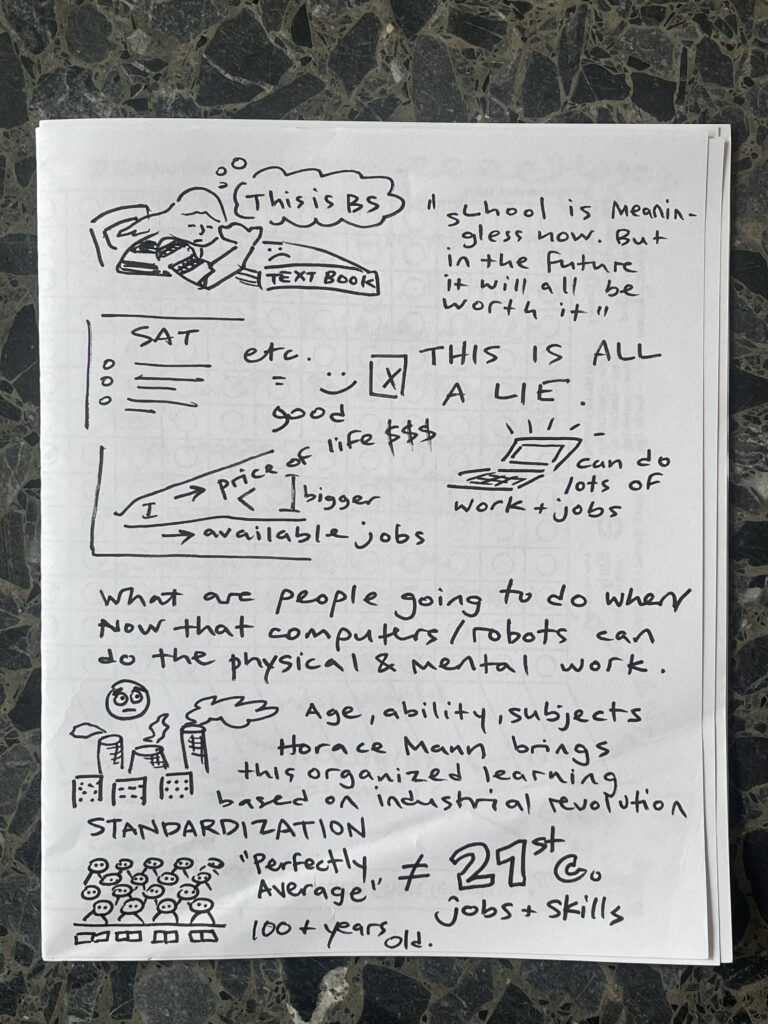 This is BS
TEXT BOOK
"school is Meanin-
gless now. But
in the future
it will all be
worth it"
SAT
etc.
=
good
X
THIS IS ALL
A LIE.
→ price of life $$$
I
<
bigger
→ available jobs
can do
lots of
work + jobs
what are people going to do when
Now that computers/robots can
do the physical & mental work.
Age, ability, subjects
Horace Mann brings
this organized learning
based on industrial revolution
STANDARDIZATION
"Perfectly
Average"
100 + years
old.
≠ 21st C.
jobs + skills